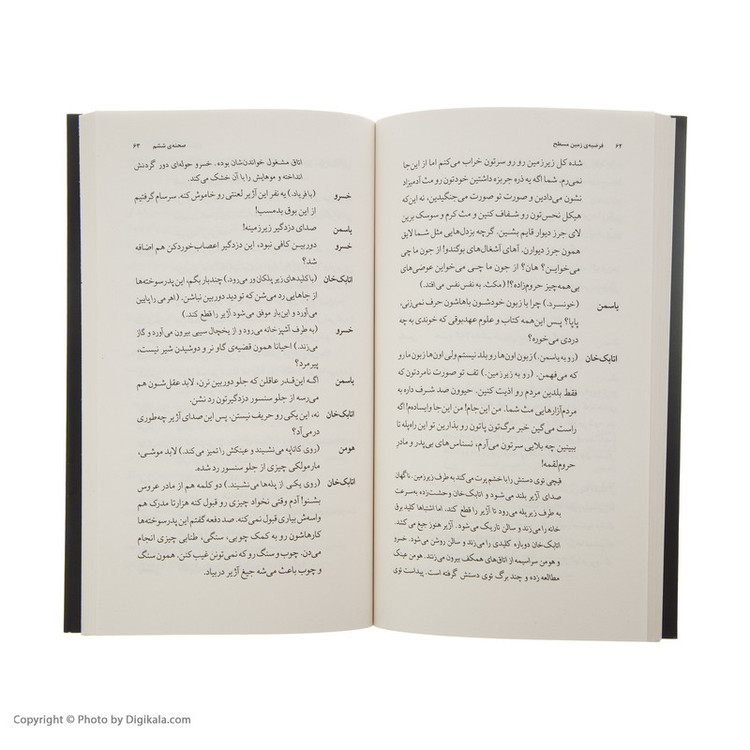 ۶۲ فرضیه‌ی زمین مسطح
شده کل زیرزمین رو رو سرتون خراب می‌کنم اما از این‌جا
نمی‌رم. شما اگه یه ذره جربزه داشتین خودتون رو مث آدمیزاد
نشون می‌دادین و صورت تو صورت می‌جنگیدین، نه این‌که
هیکل نحس‌تون رو شفاف کنین و مث کرم و سوسک برین
لای جرز دیوار قایم بشین. گرچه بزدل‌هایی مثل شما لایق
همون جرز دیوارن. آهای آشغال‌های بوگندو! از جون ما چی
می‌خواین؟ هان؟ از جون ما چی می‌خواین عوضی‌های
بی‌همه‌چیز حروم‌زاده؟! (مکث. به نفس‌نفس می‌افتد.)
یاسمن (خونسرد.) چرا با زبون خودشون باهاشون حرف نمی‌زنی،
پاپا؟ پس این‌همه کتاب و علوم عهدبوقی که خوندی به چه
دردی می‌خوره؟
اتابک‌خان (رو به یاسمن.) زبون اون‌ها رو بلد نیستم ولی اون‌ها زبون ما رو
که می‌فهمن. (رو به زیرزمین.) تف تو صورت نامردتون که
فقط بلدین مردم رو اذیت کنین. حیوون صد شرف داره به
مردم‌آزارهایی مث شما. من این‌جام! من این‌جا وایساده‌م! اگه
راست می‌گین خبر مرگ‌تون پاتون رو بذارین تو این راه‌پله تا
ببینین چه بلایی سرتون می‌آرم، نسناس‌های بی‌پدر و مادر
حروم‌لقمه!
قیچی توی دستش را با خشم پرت می‌کند به طرف زیرزمین. ناگهان
صدای آژیر بلند می‌شود و اتابک‌خان وحشت‌زده به‌سرعت
به طرف زیر پله می‌رود تا آژیر را قطع کند. اما اشتباها کلید برق
خانه را می‌زند و سالن تاریک می‌شود. آژیر هنوز جیغ می‌کشد.
اتابک‌خان دوباره کلیدی را می‌زند و سالن روشن می‌شود. خسرو
و هومن سراسیمه از اتاق‌های همکف بیرون می‌زنند. هومن عینک
مطالعه زده و چند برگ توی دستش گرفته است. پیداست توی
صحنه‌ی ششم ۶۳
اتاق مشغول خواندن‌شان بوده. خسرو حوله‌ای دور گردنش
انداخته و موهایش را با آن خشک می‌کند.
خسرو (با فریاد.) یه نفر این آژیر لعنتی رو خاموش کنه. سرسام گرفتیم
از این بوق بدمسب!
یاسمن صدای دزدگیر زیرزمینه!
خسرو دوربین کافی نبود، این دزدگیر اعصاب‌خوردکن هم اضافه
شد؟
اتابک‌خان (با کلیدهای زیر پلکان ور می‌رود.) چند بار بگم، این پدرسوخته‌ها
از جاهایی رد می‌شن که تو دید دوربین نباشن. (اهرمی را پایین
می‌آورد و این بار موفق می‌شود آژیر را قطع کند.)
خسرو (به طرف آشپزخانه می‌رود و از یخچال سیبی بیرون می‌آورد و گاز
می‌زند.) احیانا همون قضیه‌ی گاو نر و دوشیدن شیر نیست،
پیرمرد؟
یاسمن اگه این‌قدر عاقلن که جلو دوربین نرن، لابد عقل‌شون هم
می‌رسه از جلو سنسور دزدگیرتون رد نشن.
اتابک‌خان نه، این یکی رو حریف نیستن. پس این صدای آژیر چه‌طوری
درمی‌آد؟
هومن (روی کاناپه می‌نشیند و عینکش را تمیز می‌کند.) لابد موشی،
مارمولکی چیزی از جلو سنسور رد شده.
اتابک‌خان (روی یکی از پله‌ها می‌نشیند.) دو کلمه هم از مادر عروس
بشنو! آدم وقتی نخواد چیزی رو قبول کنه هزارتا مدرک هم
واسه‌ش بیاری قبول نمی‌کنه. صد دفعه گفتم این پدرسوخته‌ها
کارهاشون رو به کمک چوبی، سنگی، طنابی چیزی انجام
می‌دن. چوب و سنگ رو که نمی‌تونن غیب کنن. همون سنگ
و چوب باعث می‌شه جیغ آژیر دربیاد.
Copyright © Photo by Digikala.com